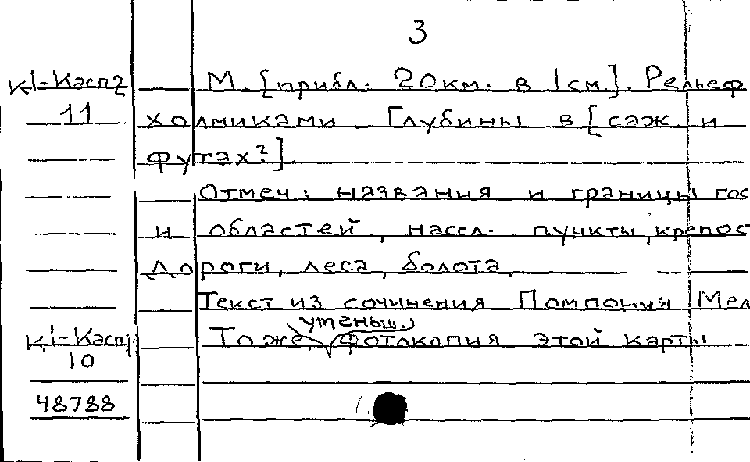 3
К1-Касп2 М. [прибл. 20км. в 1см.]. Рельеф
11 холмиками Глубины в [саж. и
футах?].
Отмеч.: названия и границы гос
и областей, насел. пункты, крепос
дороги, леса, болота.
Текст из сочинения Помпония Мел
уменьш.
К1-Касп1 То же, фотокопия этой карты
10
48788